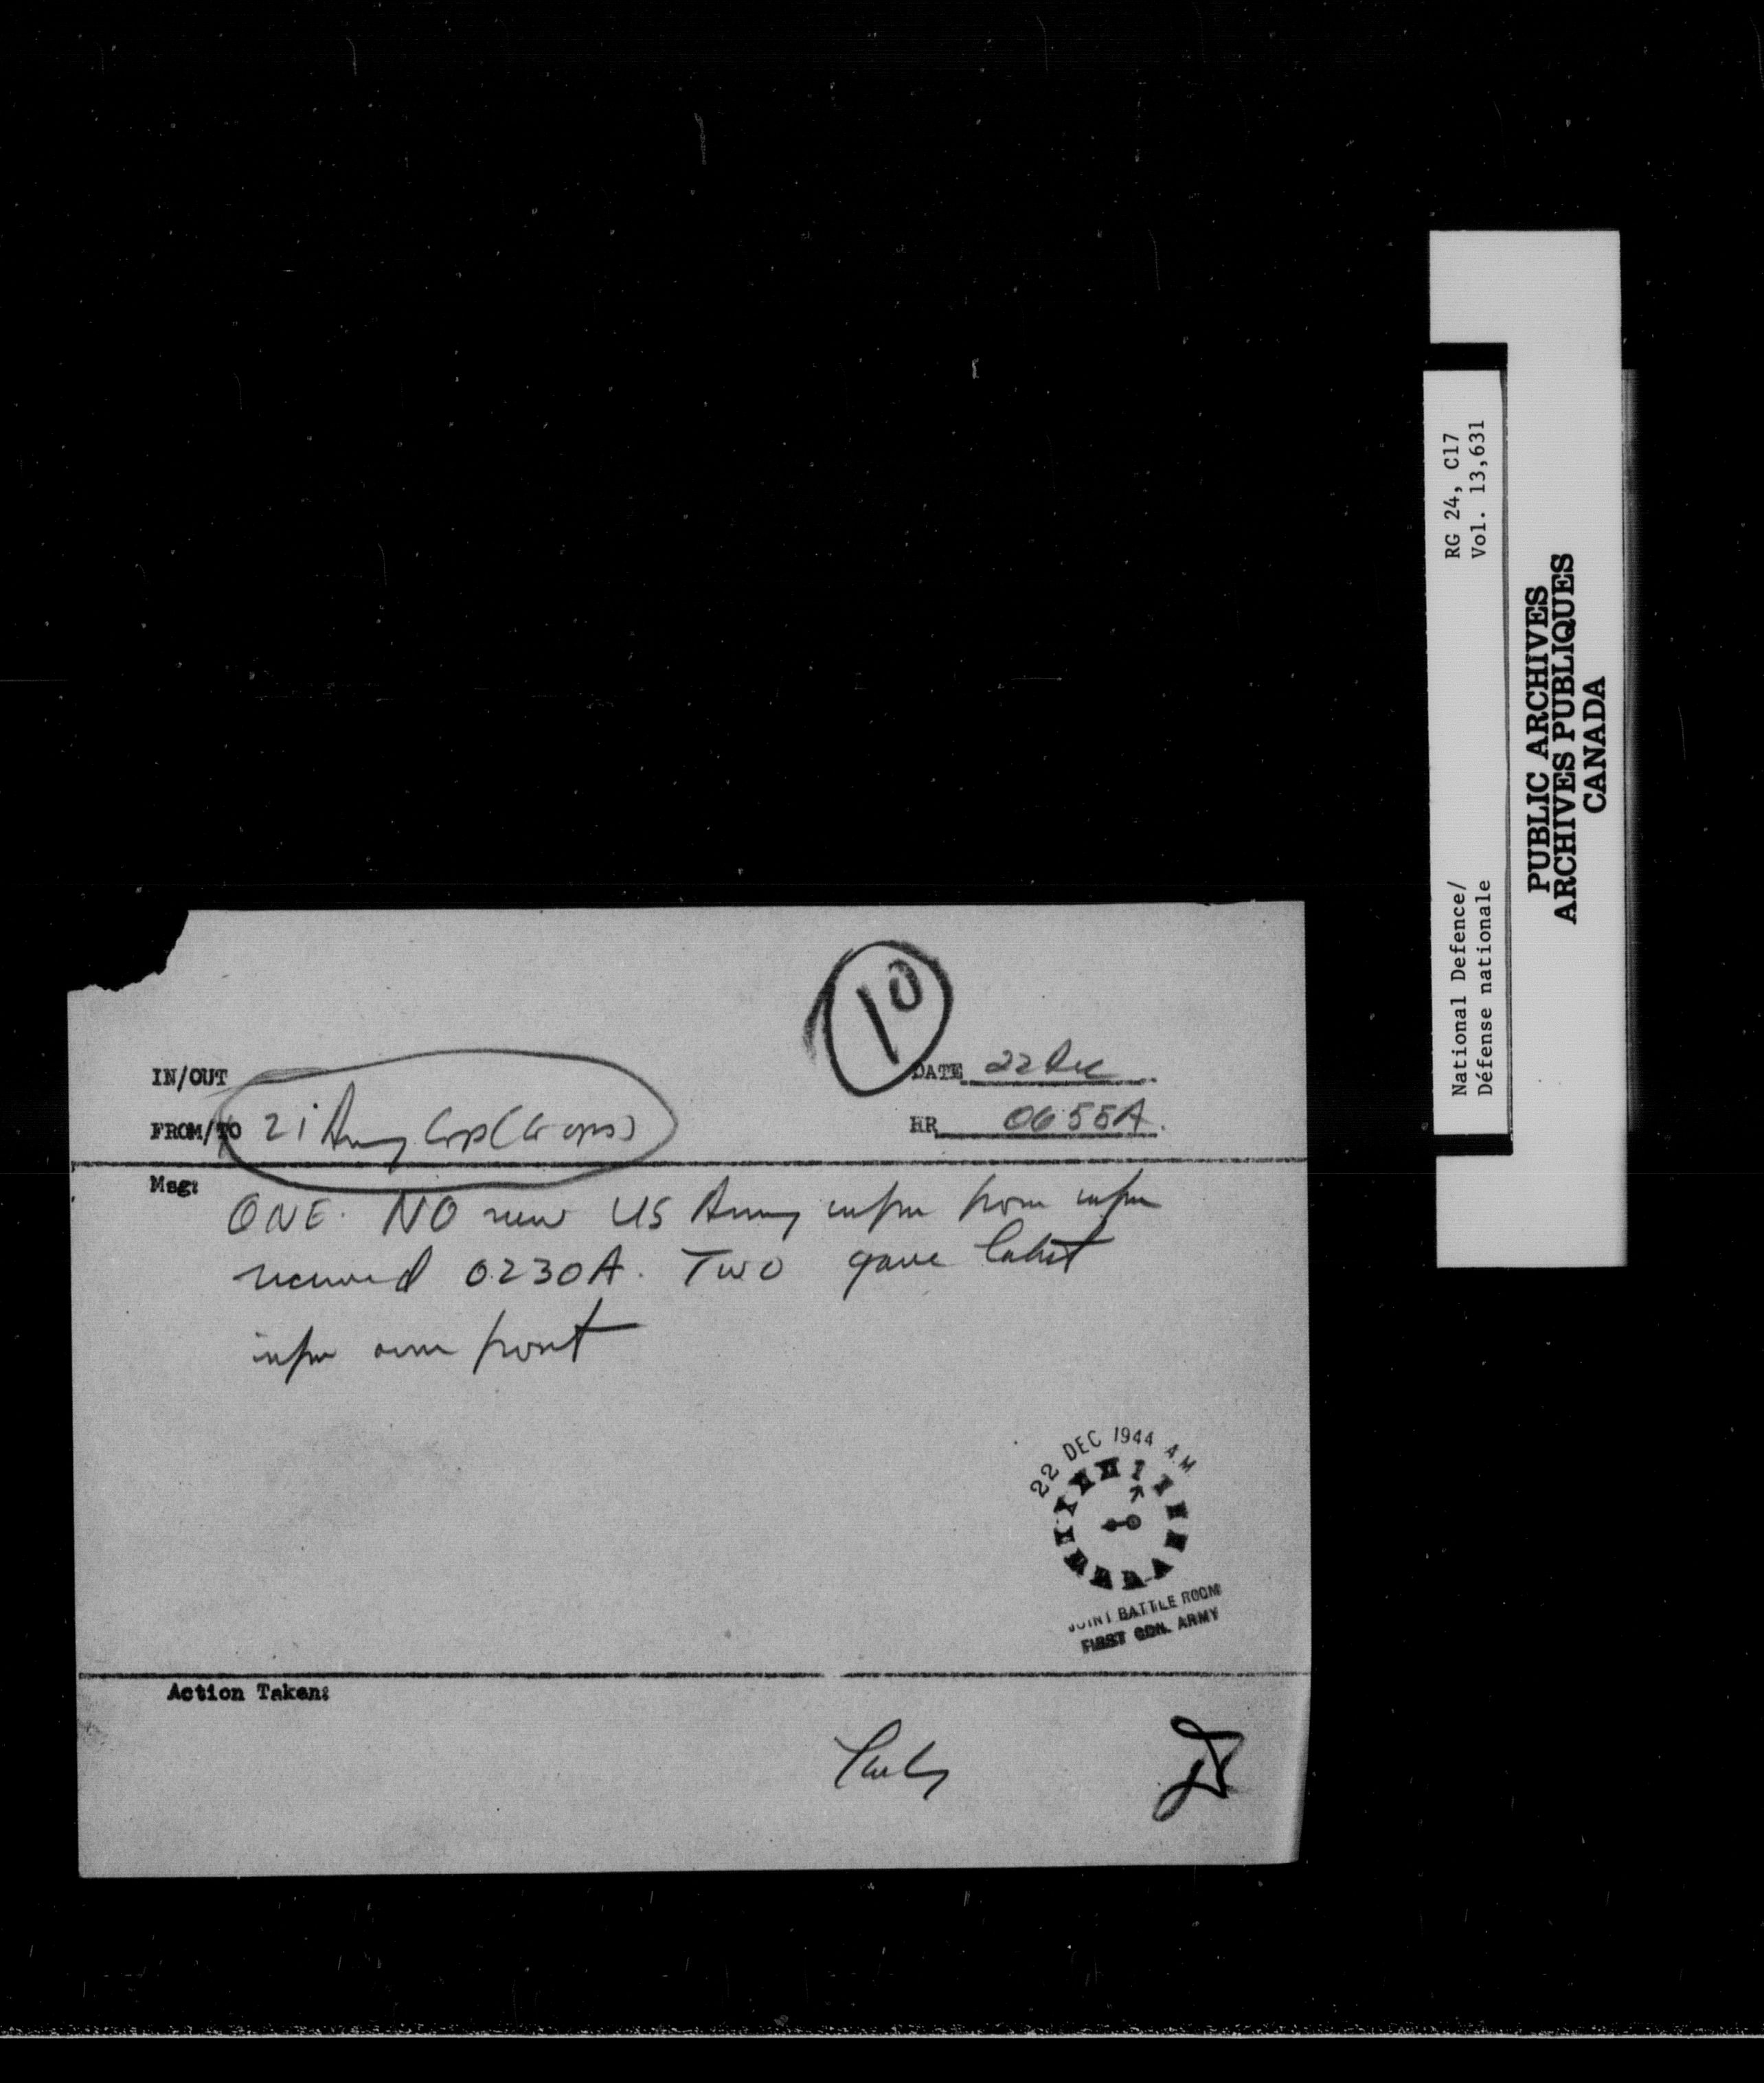 10
IN/OUT
DATE 22 Dec
FROM/TO 21 Army Grp (G ops)
HR 0655A.
Msg:
ONE. NO new US Army infm from infm
received 0230A. Two gave latest
infm own front
22 DEC 1944 A.M
JOINT BATTLE ROOM
FIRST CDN. ARMY
Action Taken:
RG 24, C17
Vol. 13,631
National Defence/
Défense nationale
PUBLIC ARCHIVES
ARCHIVES PUBLIQUES
CANADA